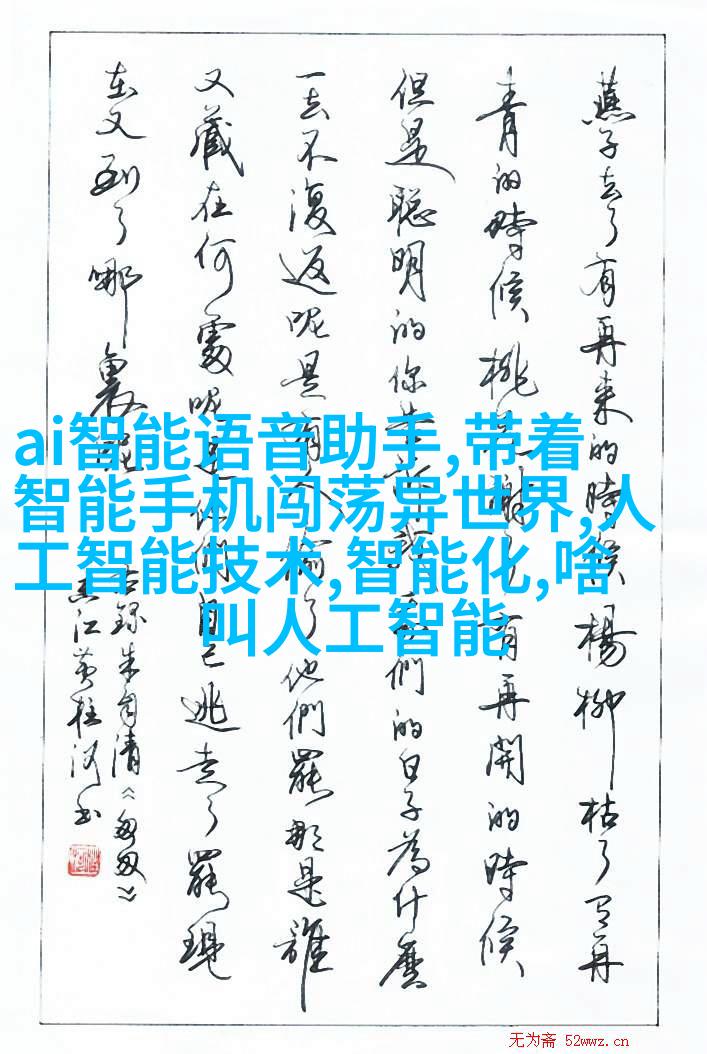 燕子去了有再来的時候楊柳枯了有再
青的時候桃花謝了有再開的時候
但是聪明的你告訴我我們的日子為什麼
一去不復返呢是有人偷了他們罷那是誰
又藏在何處呢是他們自己逃走了罷現
在又到了哪裏呢
右錄朱自清《匆匆》
江黄柱河书
ai智能语音助手,带着
智能手机闯荡异世界,人
工智能技术,智能化,啥
叫人工智能
无为斋 52wwz.cn